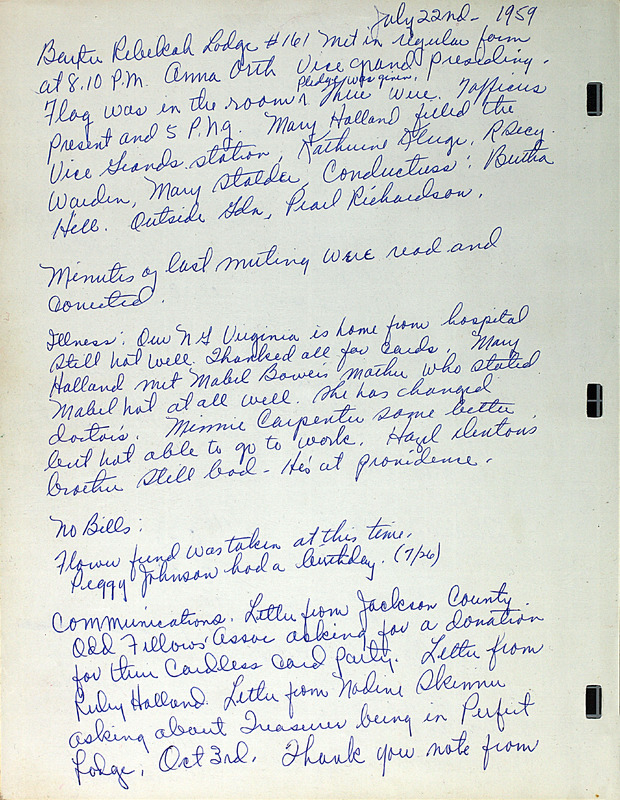 July 22nd - 1959
Rebekah Lodge #161 met in regular form
at 8.10 P.M. Anna Orth Vice grand presiding.
Pledge was given.
Flag was in the room & there were 7 officers
present and 5 P.N.g. Mary Halland filled the
Vice Grands station, Katherine Kluge, R Secy.
Warden, Mary Stalder, Conductress: Bertha
Hell. Outside Gdn, Pearl Richardson.
Minutes of last meeting were read and
corrected.
Illness: Our N G Virginia is home from hospital
still not well. Thanked all for cards. Mary
Halland met Mabel Bowers mother who stated
Mabel not at all well. She has changed
doctors. Minnie Carpenter some better
but not able to go to work. Hazel Dentons
brother still bad - He's at providence.
No Bills:
Flower fund was taken at this time.
Peggy Johnson had a birthday. (7/26)
Communications. Letter from Jackson County
Odd Fellows' Assoc asking for a donation
for their Cardless Card Party. Letter from
Ruby Halland. Letter from Nadine Skinner
asking about Treasurer being in Perfect
Lodge, Oct 3rd. Thank you note from